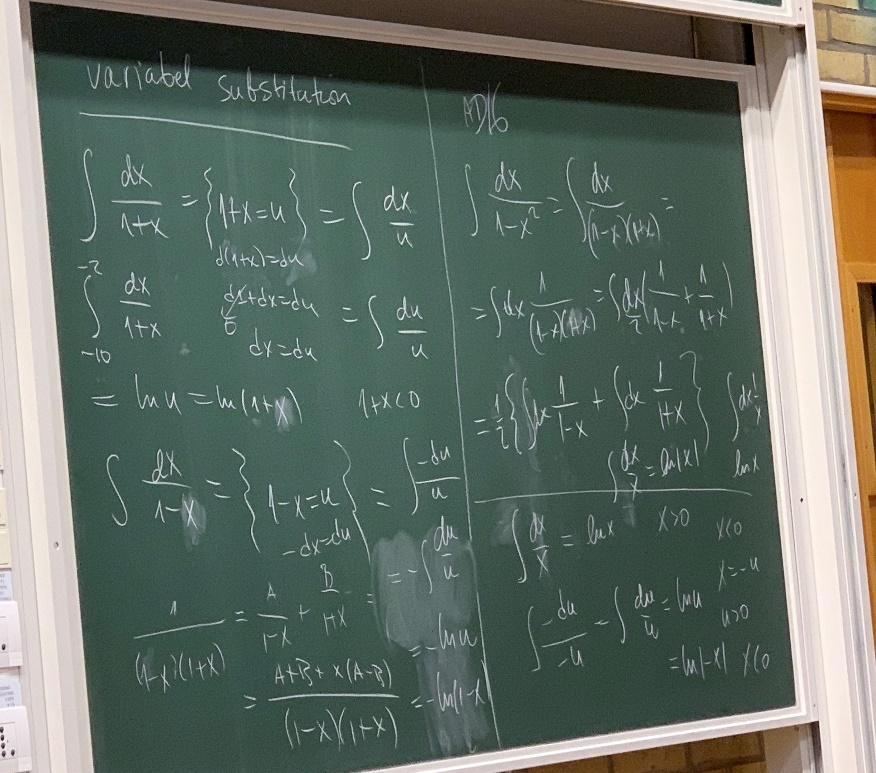 variabel substitution
∫ dx/(1+x) = {1+x=u} = ∫ dx/u
d(1+x)=du
∫_{-10}^{-2} dx/(1+x)
d1+dx=du = ∫ du/u
0
dx=du
= ln u = ln(1+x) 1+x<0
∫ dx/(1-x) = {1-x=u} = ∫ -du/u
-dx=du
= -∫ du/u
1/((1-x)(1+x)) = A/(1-x) + B/(1+x) =
= -ln u
= (A+B+x(A-B))/((1-x)(1+x))
= -ln(1-x)
∫ dx/(1-x²) = ∫ dx/((1-x)(1+x)) =
= ∫ dx 1/((1-x)(1+x)) = ∫ dx/2 (1/(1-x) + 1/(1+x))
= 1/2 {∫ dx 1/(1-x) + ∫ dx 1/(1+x)} ∫ dx 1/x
∫ dx/x = ln|x| ln x
∫ dx/x = ln x x>0 x<0
x=-u
∫ -du/-u = ∫ du/u = ln u u>0
= ln|-x| x<0